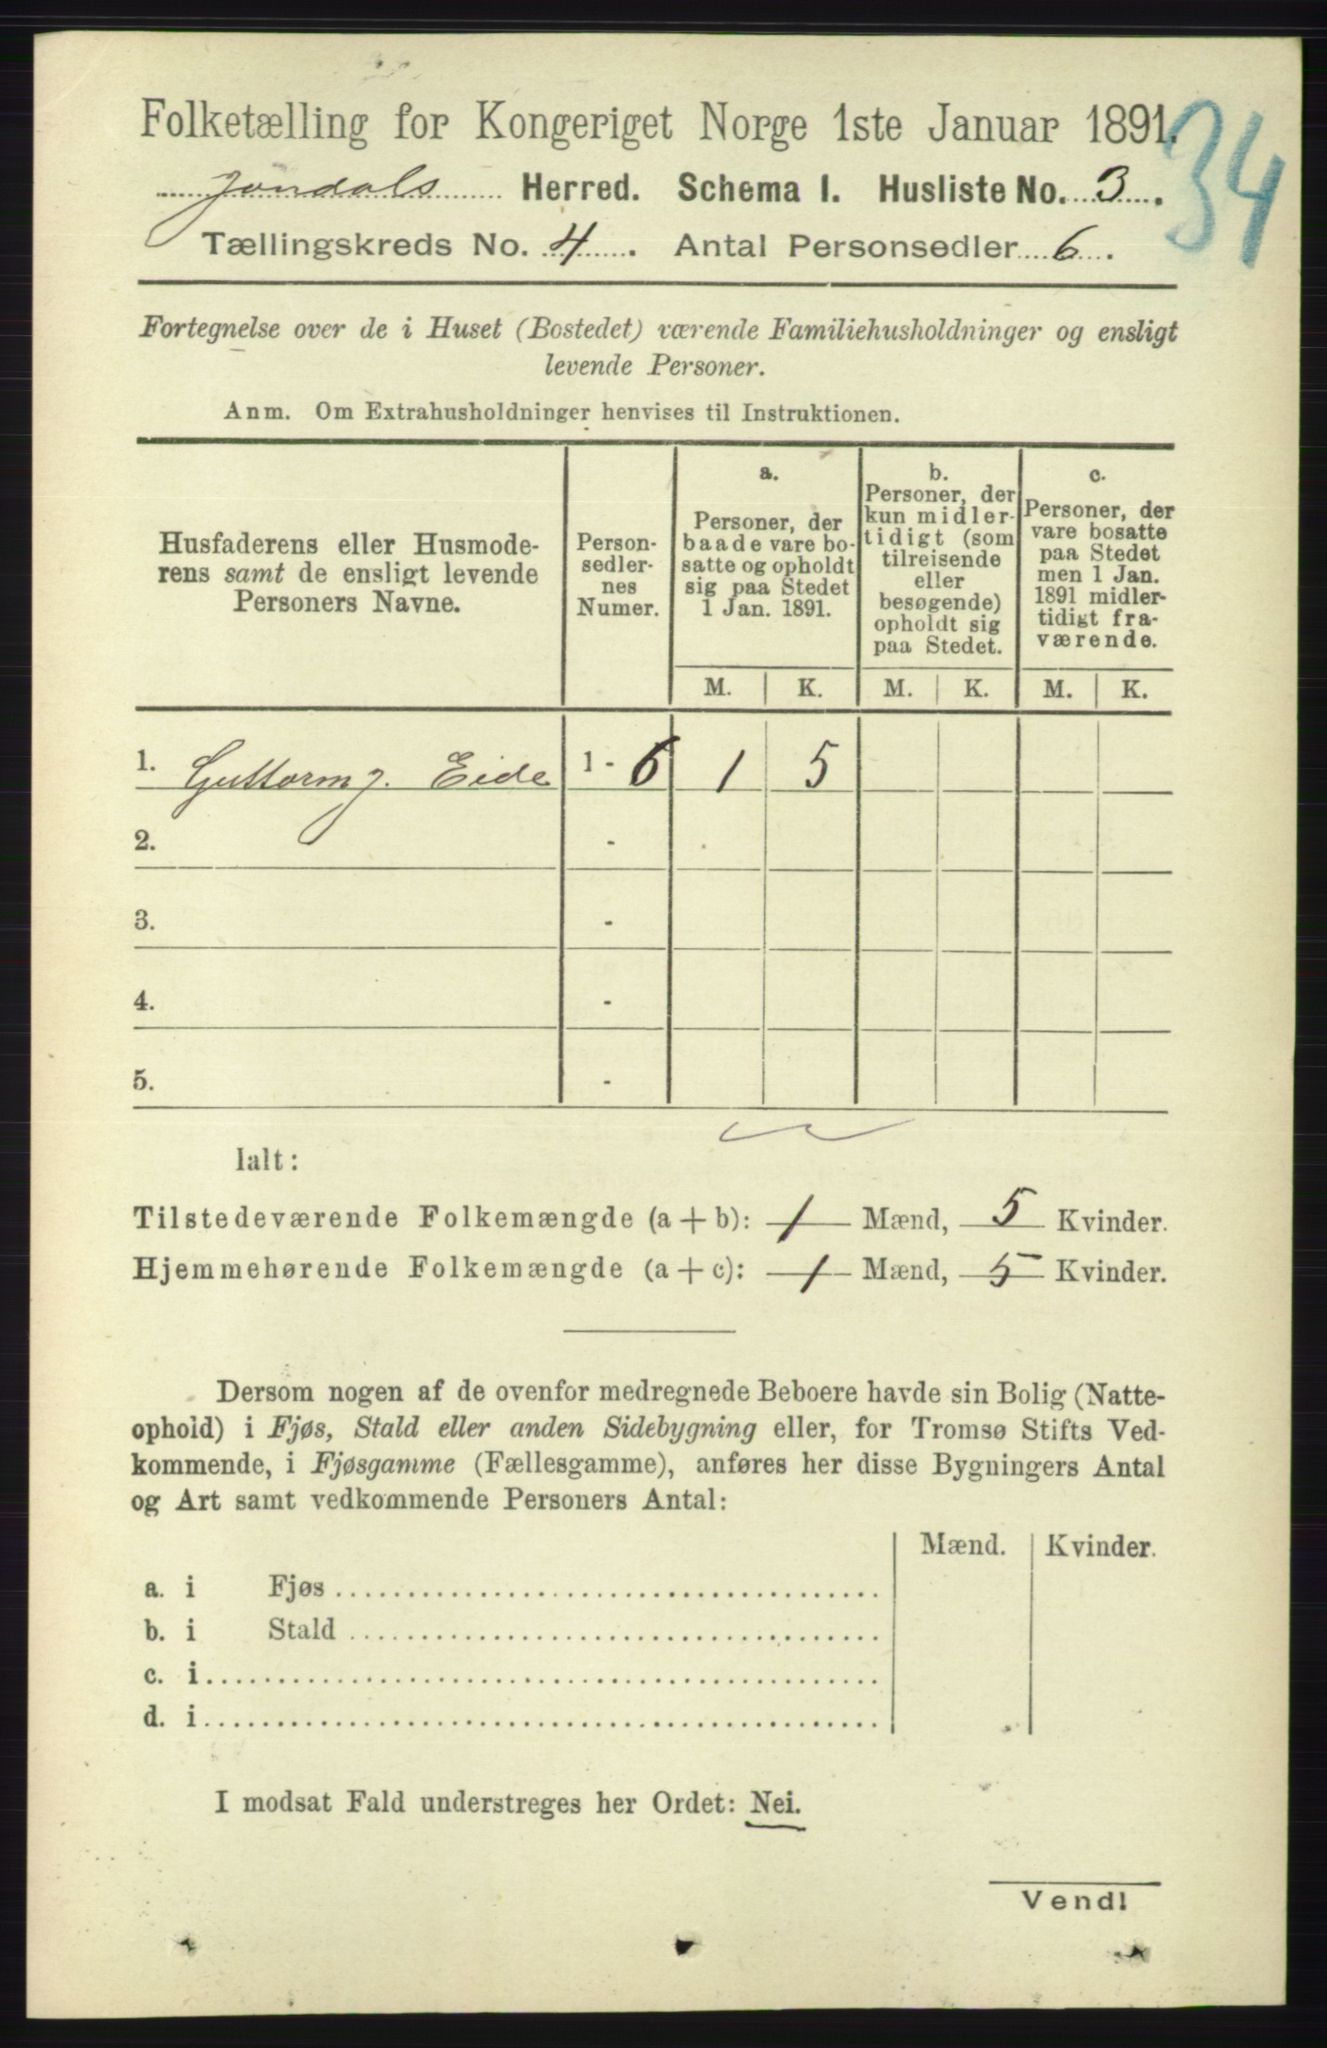 34
Folketælling for Kongeriget Norge 1ste Januar 1891.
Jondals Herred. Schema I. Husliste No. 3.
Tællingskreds No. 4. Antal Personsedler 6.
Fortegnelse over de i Huset (Bostedet) værende Familiehusholdninger og ensligt
levende Personer.
Anm. Om Extrahusholdninger henvises til Instruktionen.
Husfaderens eller Husmode-
rens samt de ensligt levende
Personers Navne.
Person-
sedler-
nes
Numer.
a.
Personer, der
baade vare bo-
satte og opholdt
sig paa Stedet
1 Jan. 1891.
b.
Personer, der
kun midler-
tidigt (som
tilreisende
eller
besøgende)
opholdt sig
paa Stedet.
c.
Personer, der
vare bosatte
paa Stedet
men 1 Jan.
1891 midler-
tidigt fra-
værende.
M. K. M. K. M. K.
1. Guttorm J. Eide 1 - 6 1 5
2. -
3. -
4. -
5. -
Ialt:
Tilstedeværende Folkemængde (a + b): 1 Mænd, 5 Kvinder.
Hjemmehørende Folkemængde (a + c): 1 Mænd, 5 Kvinder.
Dersom nogen af de ovenfor medregnede Beboere havde sin Bolig (Natte-
ophold) i Fjøs, Stald eller anden Sidebygning eller, for Tromsø Stifts Ved-
kommende, i Fjøsgamme (Fællesgamme), anføres her disse Bygningers Antal
og Art samt vedkommende Personers Antal:
Mænd. Kvinder.
a. i Fjøs
b. i Stald
c. i
d. i
I modsat Fald understreges her Ordet: Nei.
Vend!